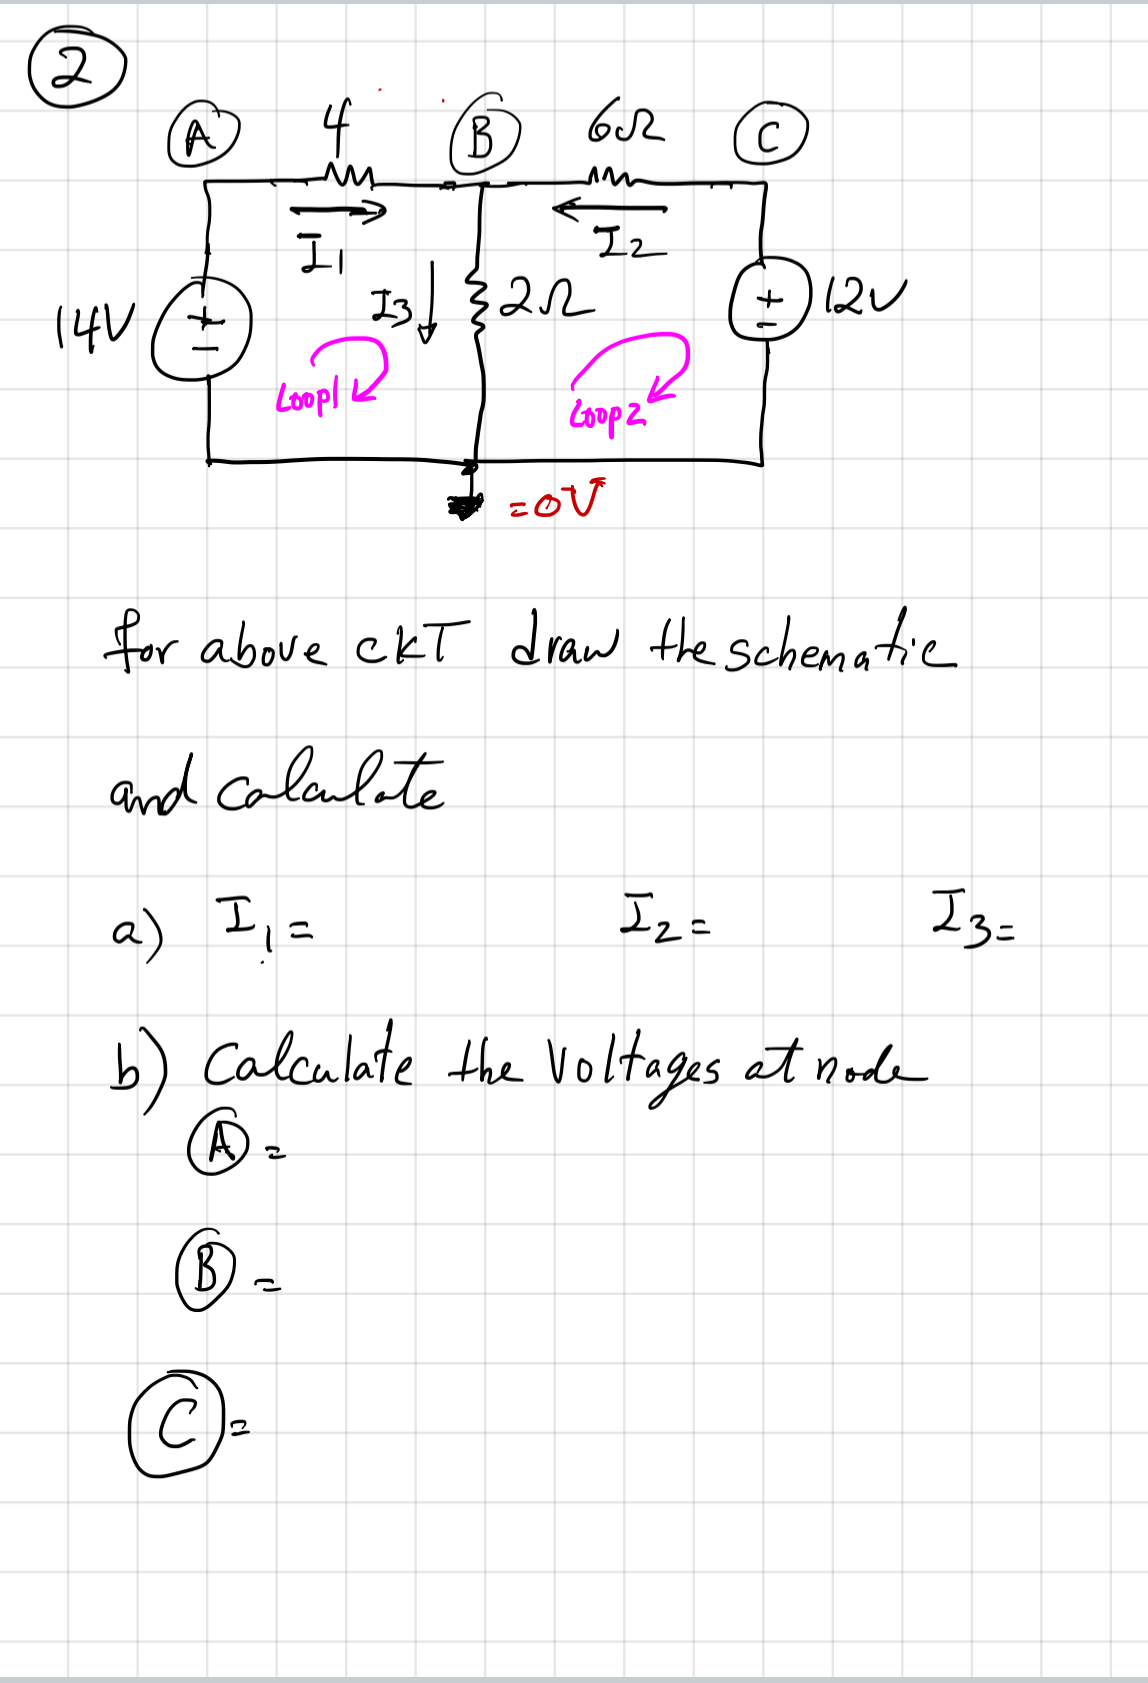 2
A 4 B 6Ω C
I1 I2
14V + - I3 2Ω + - 12V
Loop1 Loop2
=0V
for above ckT draw the schematic
and calculate
a) I1= I2= I3=
b) Calculate the Voltages at node
A =
B =
C =